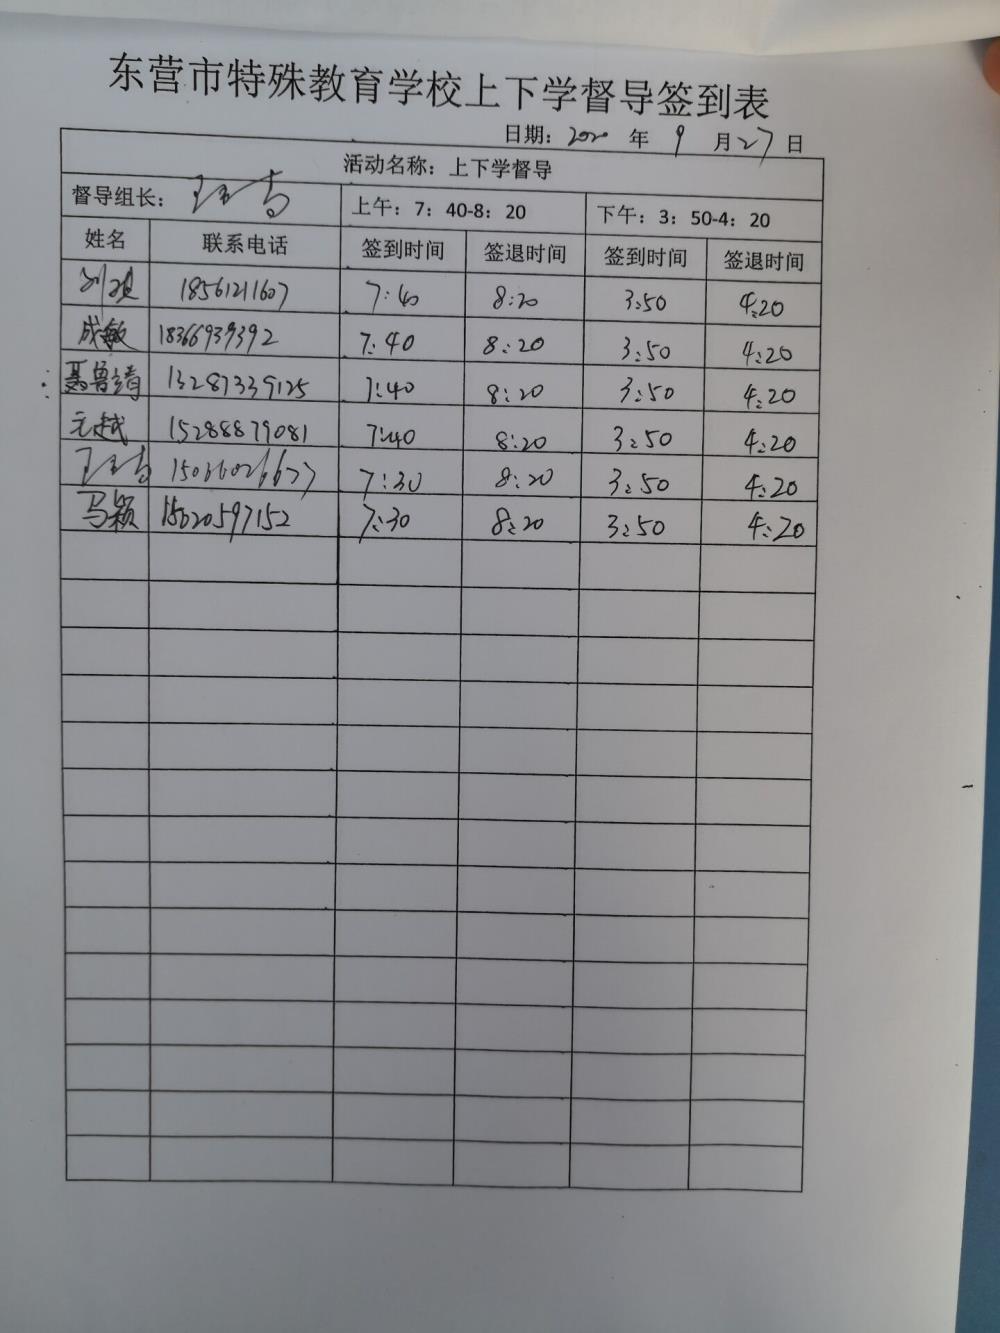 东营市特殊教育学校上下学督导签到表
日期：2020 年 9 月 27 日
活动名称：上下学督导
督导组长： 上午：7：40-8：20 下午：3：50-4：20
姓名 联系电话 签到时间 签退时间 签到时间 签退时间
18561211607 7:40 8:20 3:50 4:20
成敏 18366939392 7:40 8:20 3:50 4:20
聂鲁靖 13287339125 7:40 8:20 3:50 4:20
元越 15288879081 7:40 8:20 3:50 4:20
7:30 8:20 3:50 4:20
马颖 15620597152 7:30 8:20 3:50 4:20